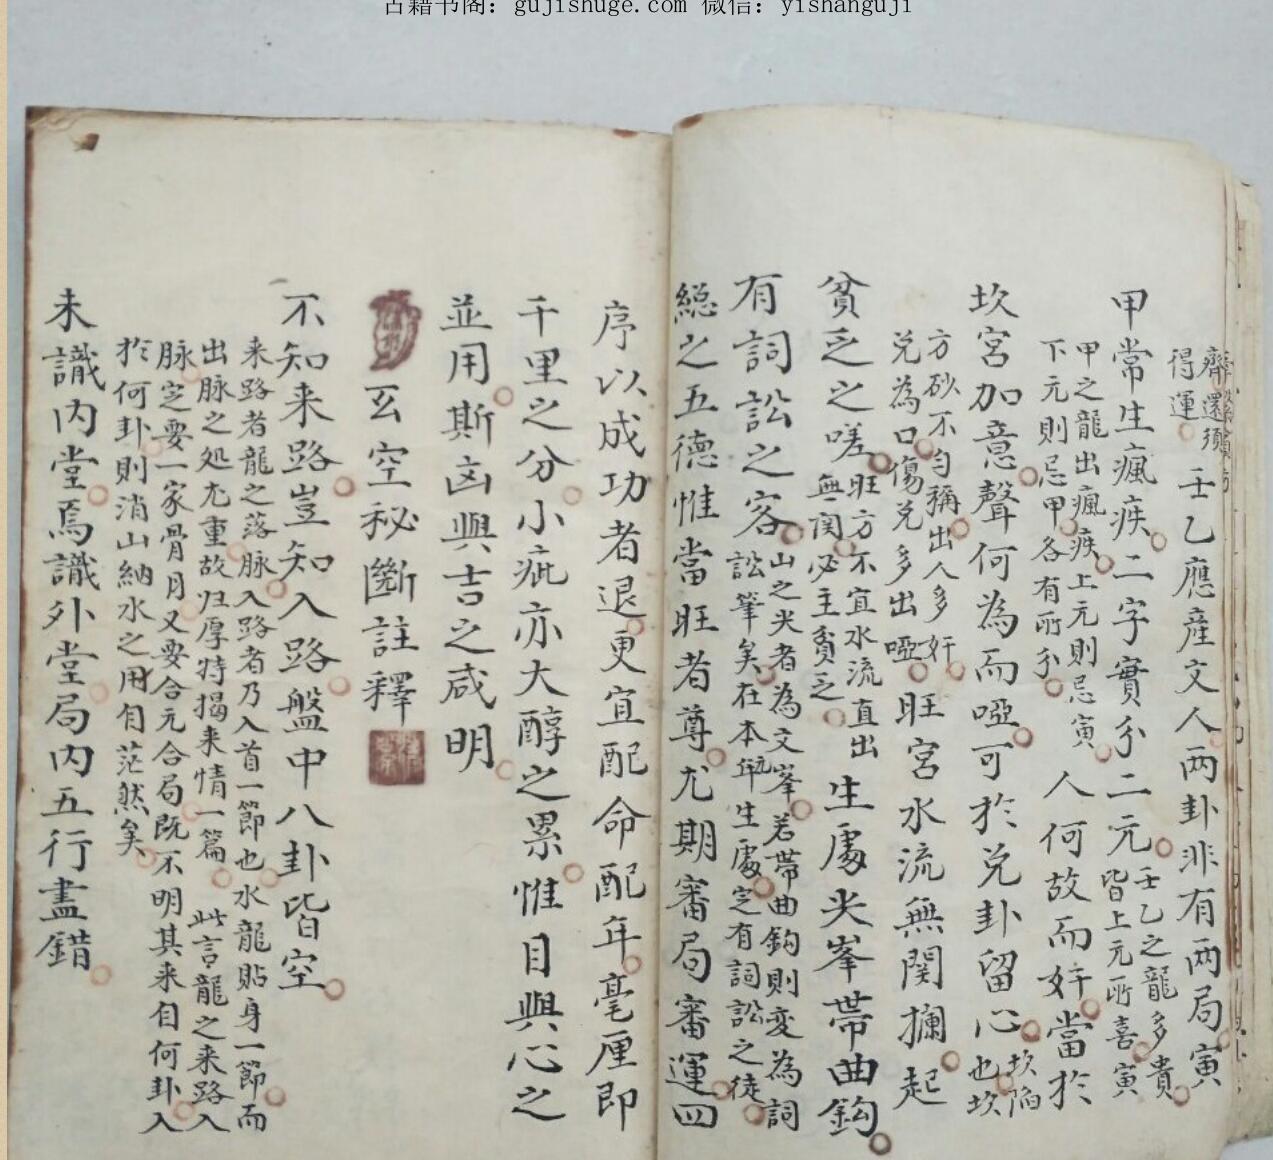 古籍书阁：gujishuge.com 微信：yishanguji
齊還須
得運
壬乙應產文人兩卦非有兩局寅
甲常生瘋疾二字實分二元
壬乙之龍多貴
皆上元所喜寅
甲之龍出瘋疾上元則忌寅
下元則忌甲各有所分
人何故而奸當於
坎宮加意聲何為而啞可於兑卦留心
坎陷
也坎
方砂不勻稱出人多奸
兑為口傷兑多出啞
旺宮水流無関攔起
貧乏之嗟
旺方不宜水流直出
無関必主貧乏
生處尖峯帶曲鈎
有詞訟之客
山之尖者為文峯若帶曲鈎則变為詞
訟筆矣在本年生處定有詞訟之徒
総之五德惟當旺者尊尤期審局審運四
序以成功者退更宜配命配年毫厘即
千里之分小疵亦大醇之累惟目與心之
並用斯凶與吉之咸明
玄空秘斷註釋
不知来路豈知入路盤中八卦皆空
来路者龍之落脉入路者乃入首一節也水龍貼身一節而
出脉之処尤重故归厚特揭来情一篇 此言龍之来路入
脉定要一家骨月又要合元合局既不明其来自何卦入
於何卦則消山納水之用自茫然矣
未識内堂焉識外堂局内五行盡錯